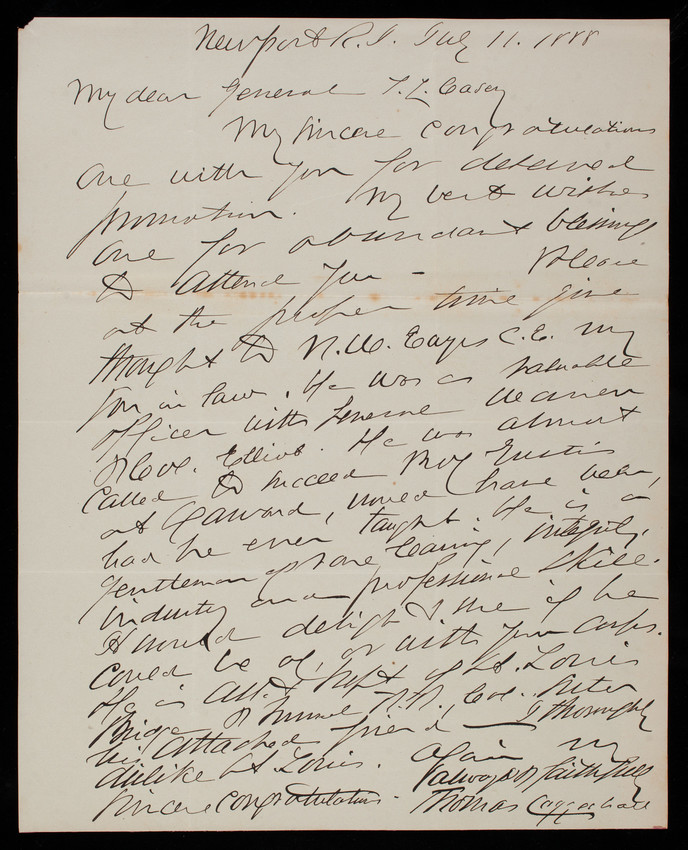 Newport R.I. July 11. 1888
My dear General T. L. Casey
My sincere congratulations
are with you for deserved
promotion. My best wishes
are for abundant blessings
to attend you - Please
at the proper time give
thought to N. W. Eayrs C.E. my
son in law. He was a valuable
officer with General Warren
& Col. Elliot. He was almost
called to succeed Prof Eustis
at Harvard, would have been,
had he ever taught. He is a
gentleman of rare learning, integrity,
industry and professional skill.
It would delight me if he
could be of, or with your corps.
He is Asst. Supt of St. Louis
Bridge & Tunnel R.R., Col.
his attached friend — I thoroughly
dislike St. Louis. Again my
sincere congratulations. & always faithfully
Thomas Coggeshall